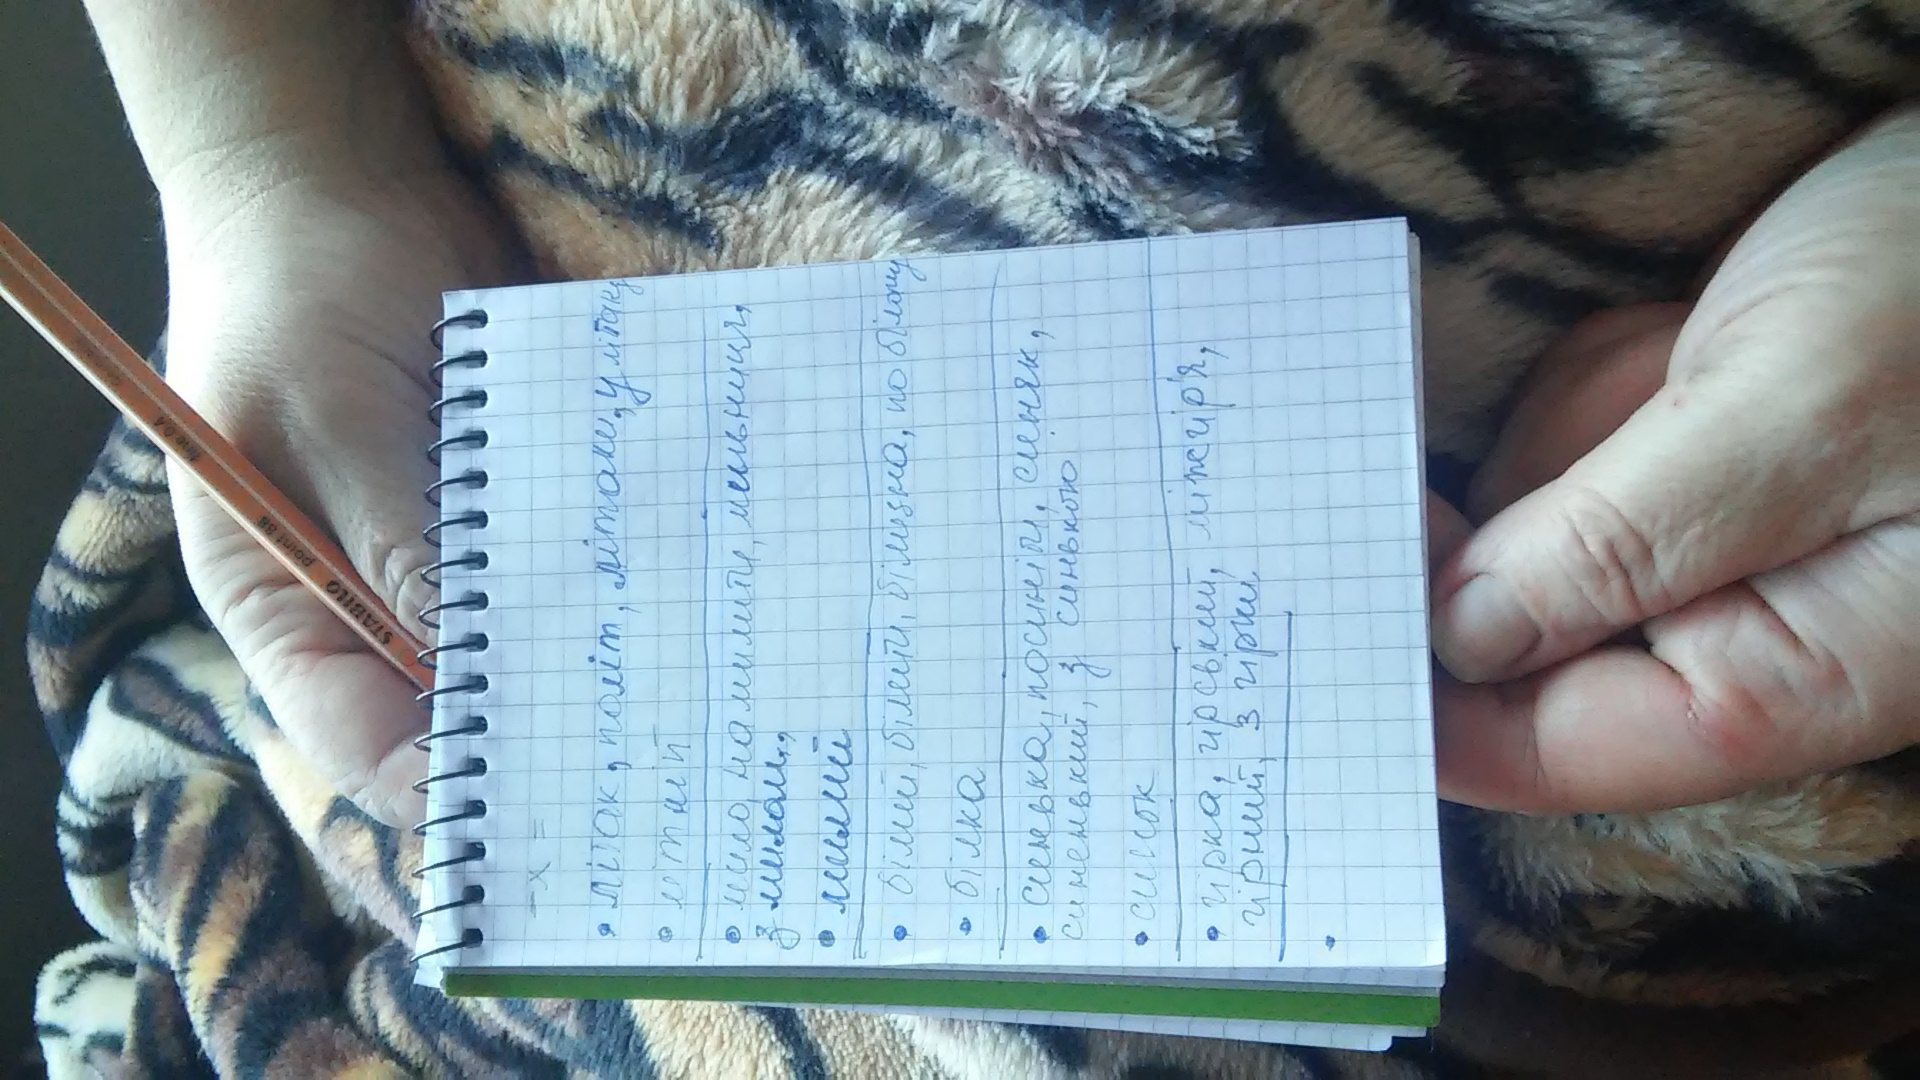 - х =
• літак, політ, літати, у літаку
• літній
• мило, намилити, мильниця,
з милом,
• милий
• білий, біліти, білизна, по білому
• білка
• синька, посиніти, синяк,
синенький, з синькою
• синок
• гірка, гірський, міжгір'я,
гірний, з гірки
•
STABILO point 88 fine 0.4